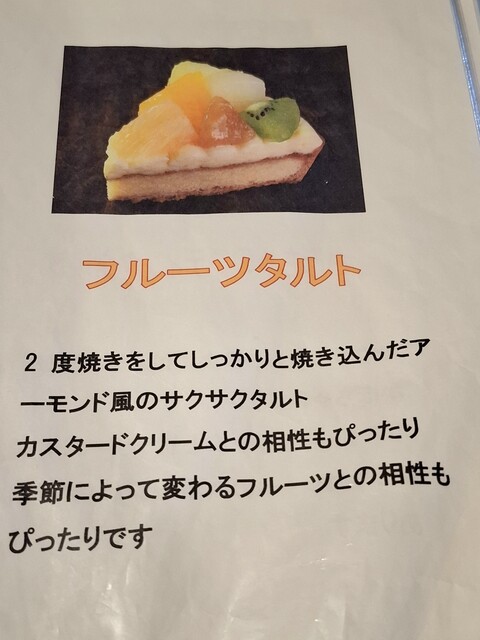 フルーツタルト
2 度焼きをしてしっかりと焼き込んだア
ーモンド風のサクサクタルト
カスタードクリームとの相性もぴったり
季節によって変わるフルーツとの相性も
ぴったりです